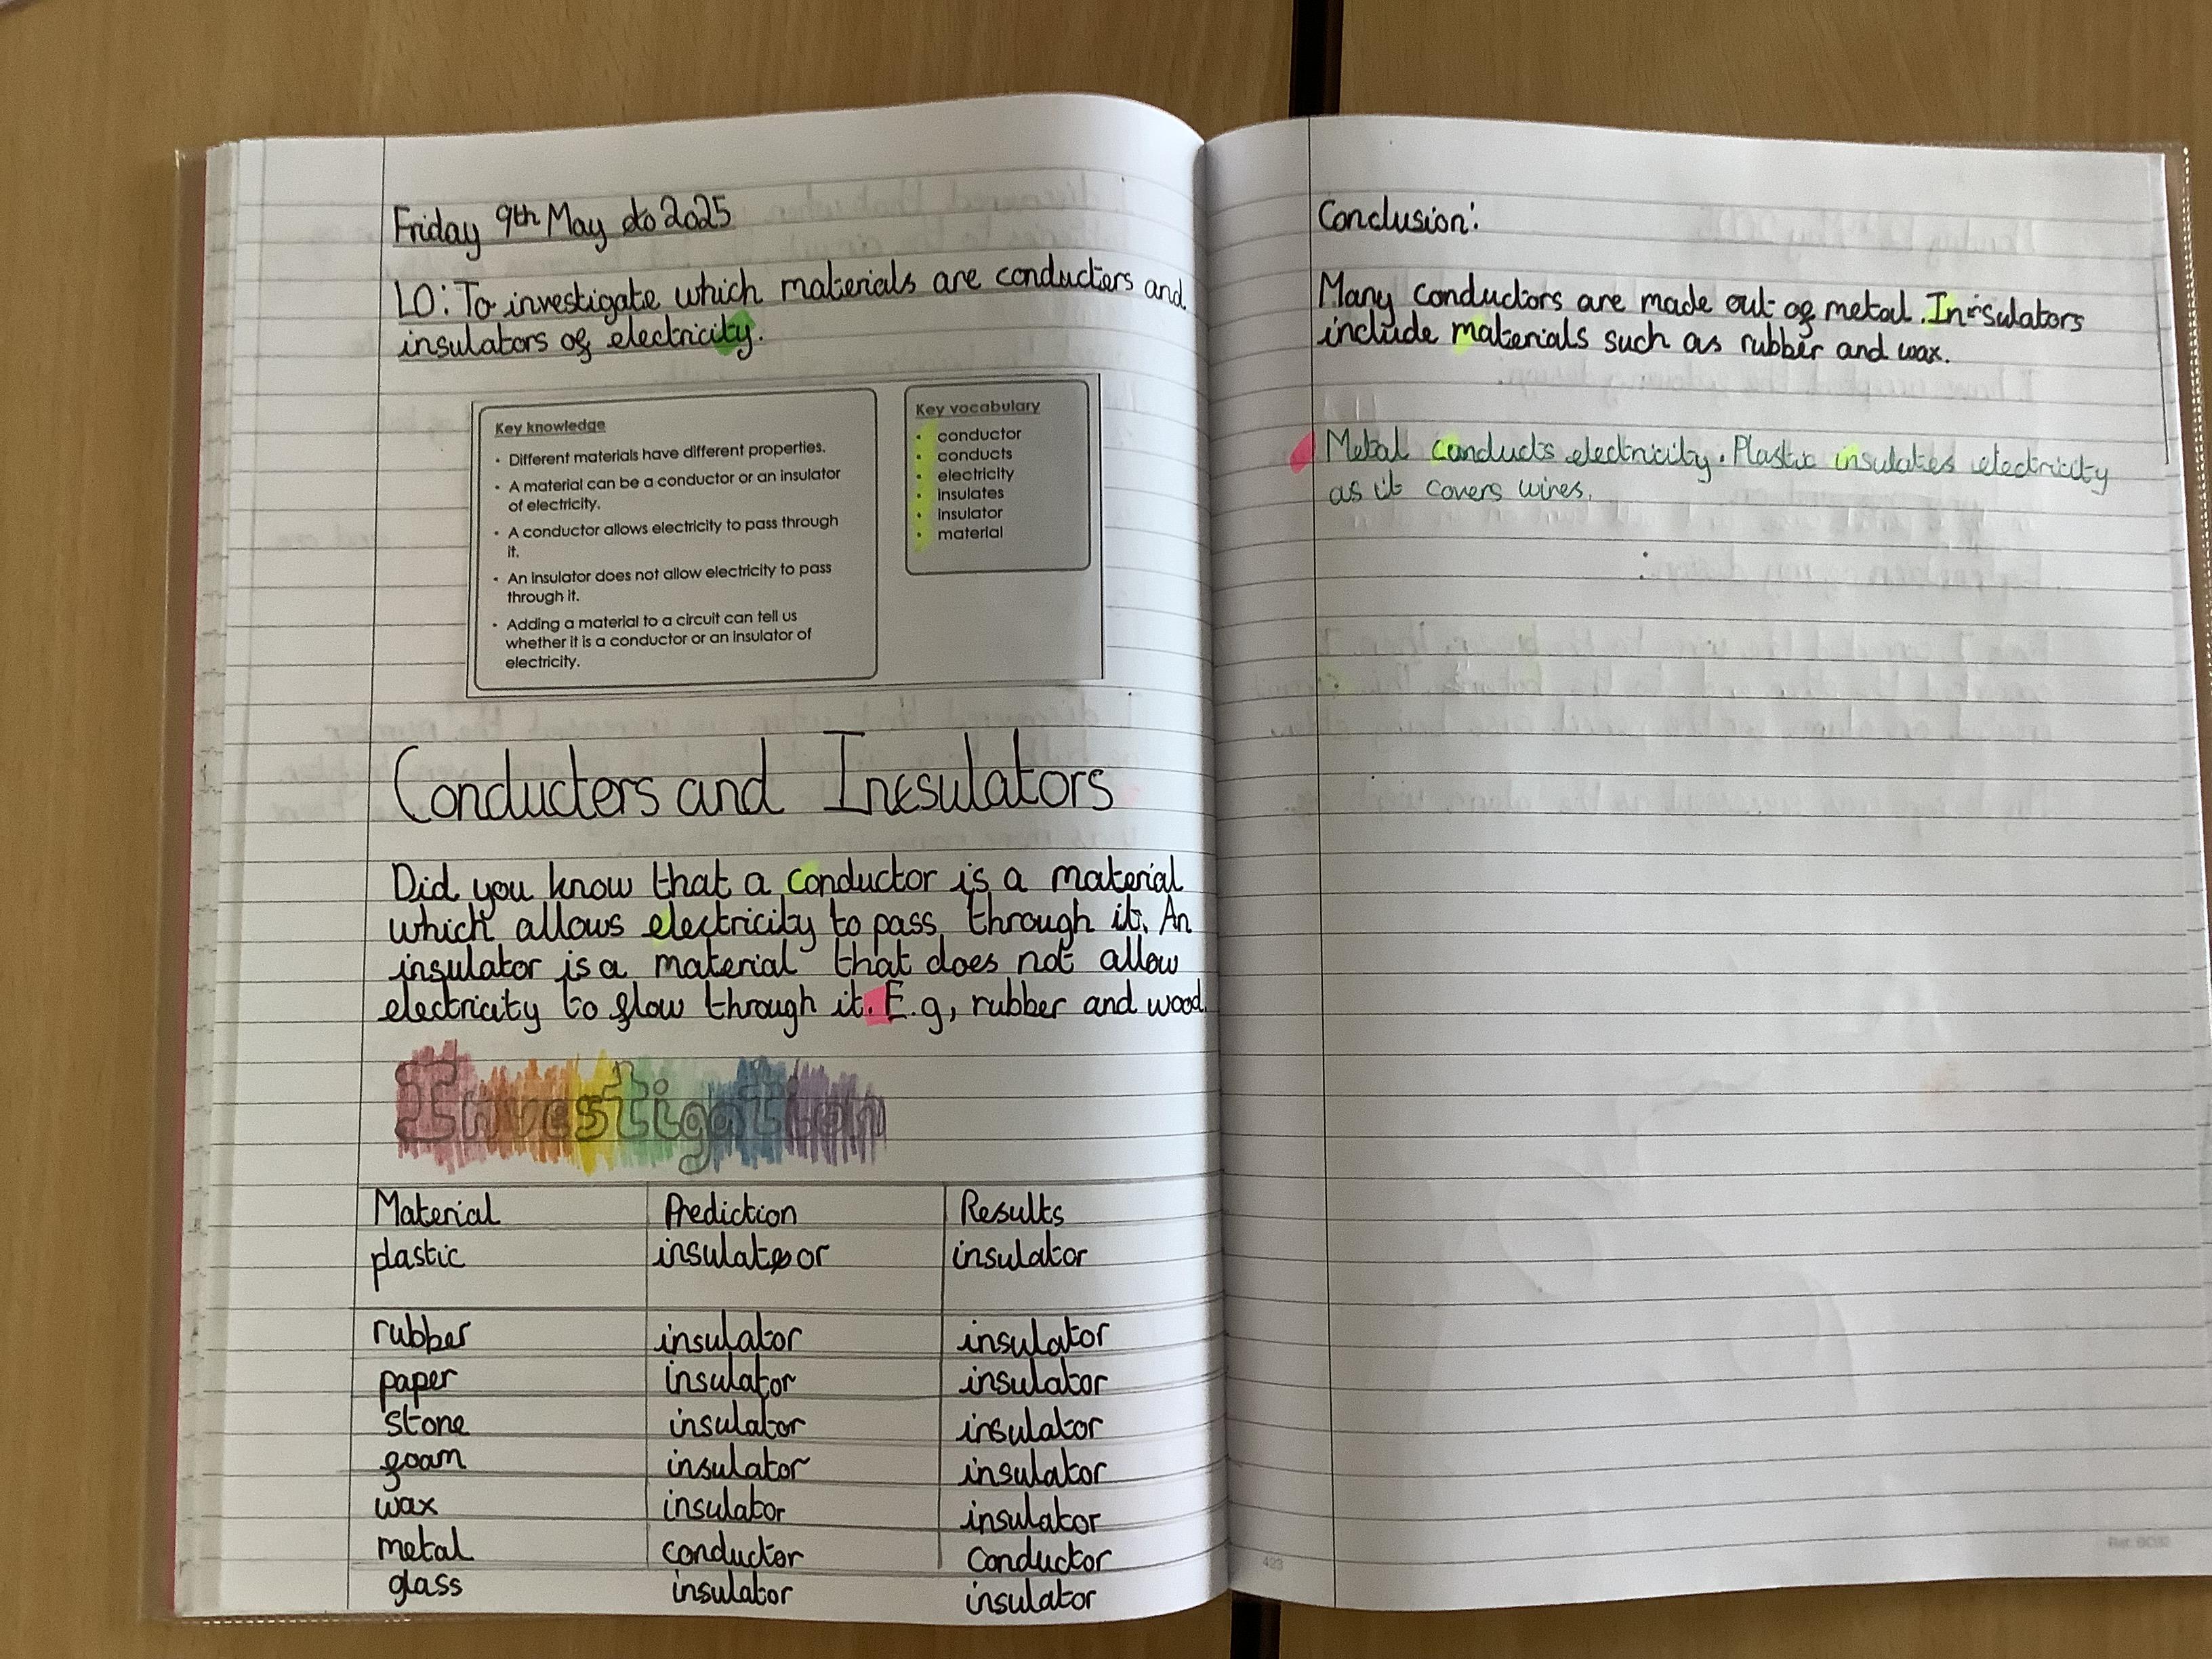 Friday 9th May do 2025
LO: To investigate which materials are conductors and
insulators of electricity.
Key knowledge
• Different materials have different properties.
• A material can be a conductor or an insulator
of electricity.
• A conductor allows electricity to pass through
it.
• An insulator does not allow electricity to pass
through it.
• Adding a material to a circuit can tell us
whether it is a conductor or an insulator of
electricity.
Key vocabulary
• conductor
• conducts
• electricity
• insulates
• insulator
• material
Conducters and Insulators
Did you know that a conductor is a material
which allows electricity to pass through it. An
insulator is a material that does not allow
electricity to flow through it. E.g, rubber and wood.
Investigation
Material Prediction Results
plastic insulator insulator
rubber insulator insulator
paper insulator insulator
stone insulator insulator
foam insulator insulator
wax insulator insulator
metal conductor conductor
glass insulator insulator
Conclusion:
Many conductors are made out of metal. Insulators
include materials such as rubber and wax.
Metal conducts electricity. Plastic insulates electricity
as it covers wires.
423